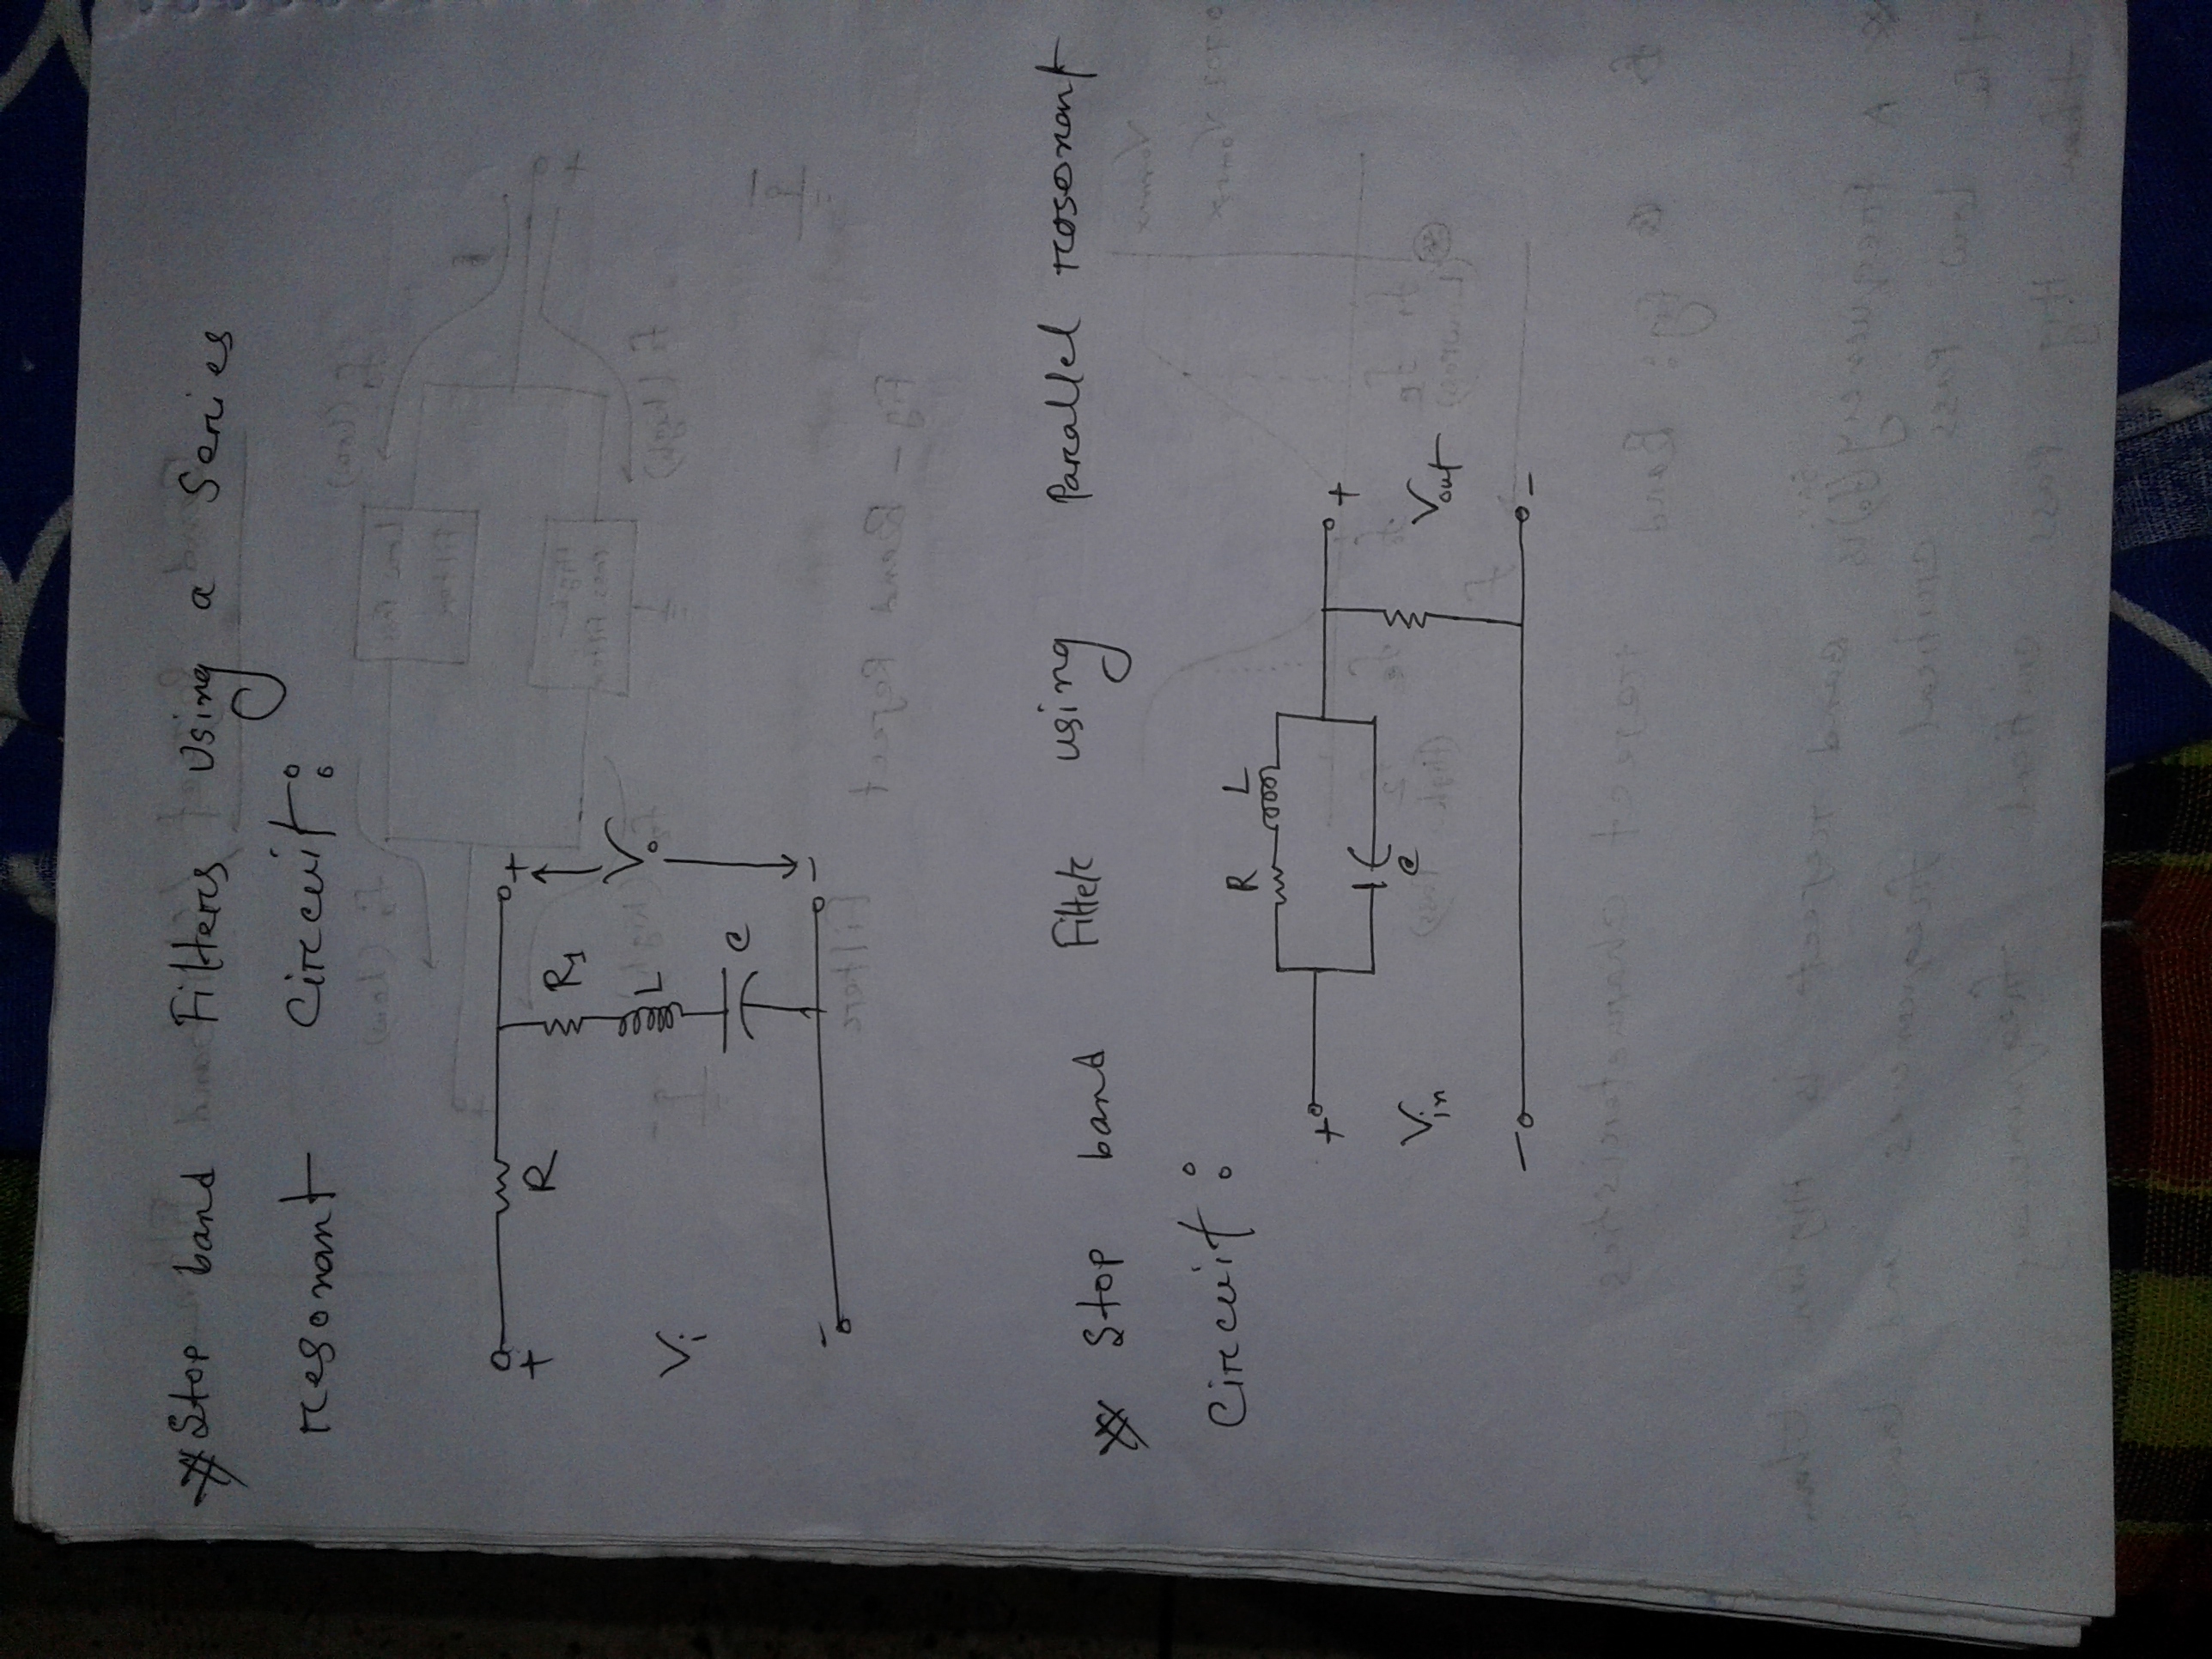 Stop band Filters Using a Series
resonant Circuit:
+
R
+
R1
Vi
L
Vo
C
-
-
Stop band Filter using Parallel resonant
Circuit:
R L
+
+
C
Vin
Vout
-
-